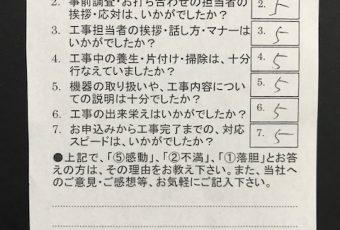 2. 事前調査・お打ち合わせの担当者の
挨拶・応対は、いかがでしたか? 2. 5
3. 工事担当者の挨拶・話し方・マナーは
いかがでしたか? 3. 5
4. 工事中の養生・片付け・掃除は、十分
行なえていましたか? 4. 5
5. 機器の取り扱いや、工事内容につい
ての説明は十分でしたか? 5. 5
6. 工事の出来栄えはいかがでしたか? 6. 5
7. お申込みから工事完了までの、対応
スピードは、いかがでしたか? 7. 5
●上記で、「⑤感動」、「②不満」、「①落胆」とお答
えの方は、その理由をお教え下さい。また、当社へ
のご意見・ご感想等、お気軽にご記入下さい。